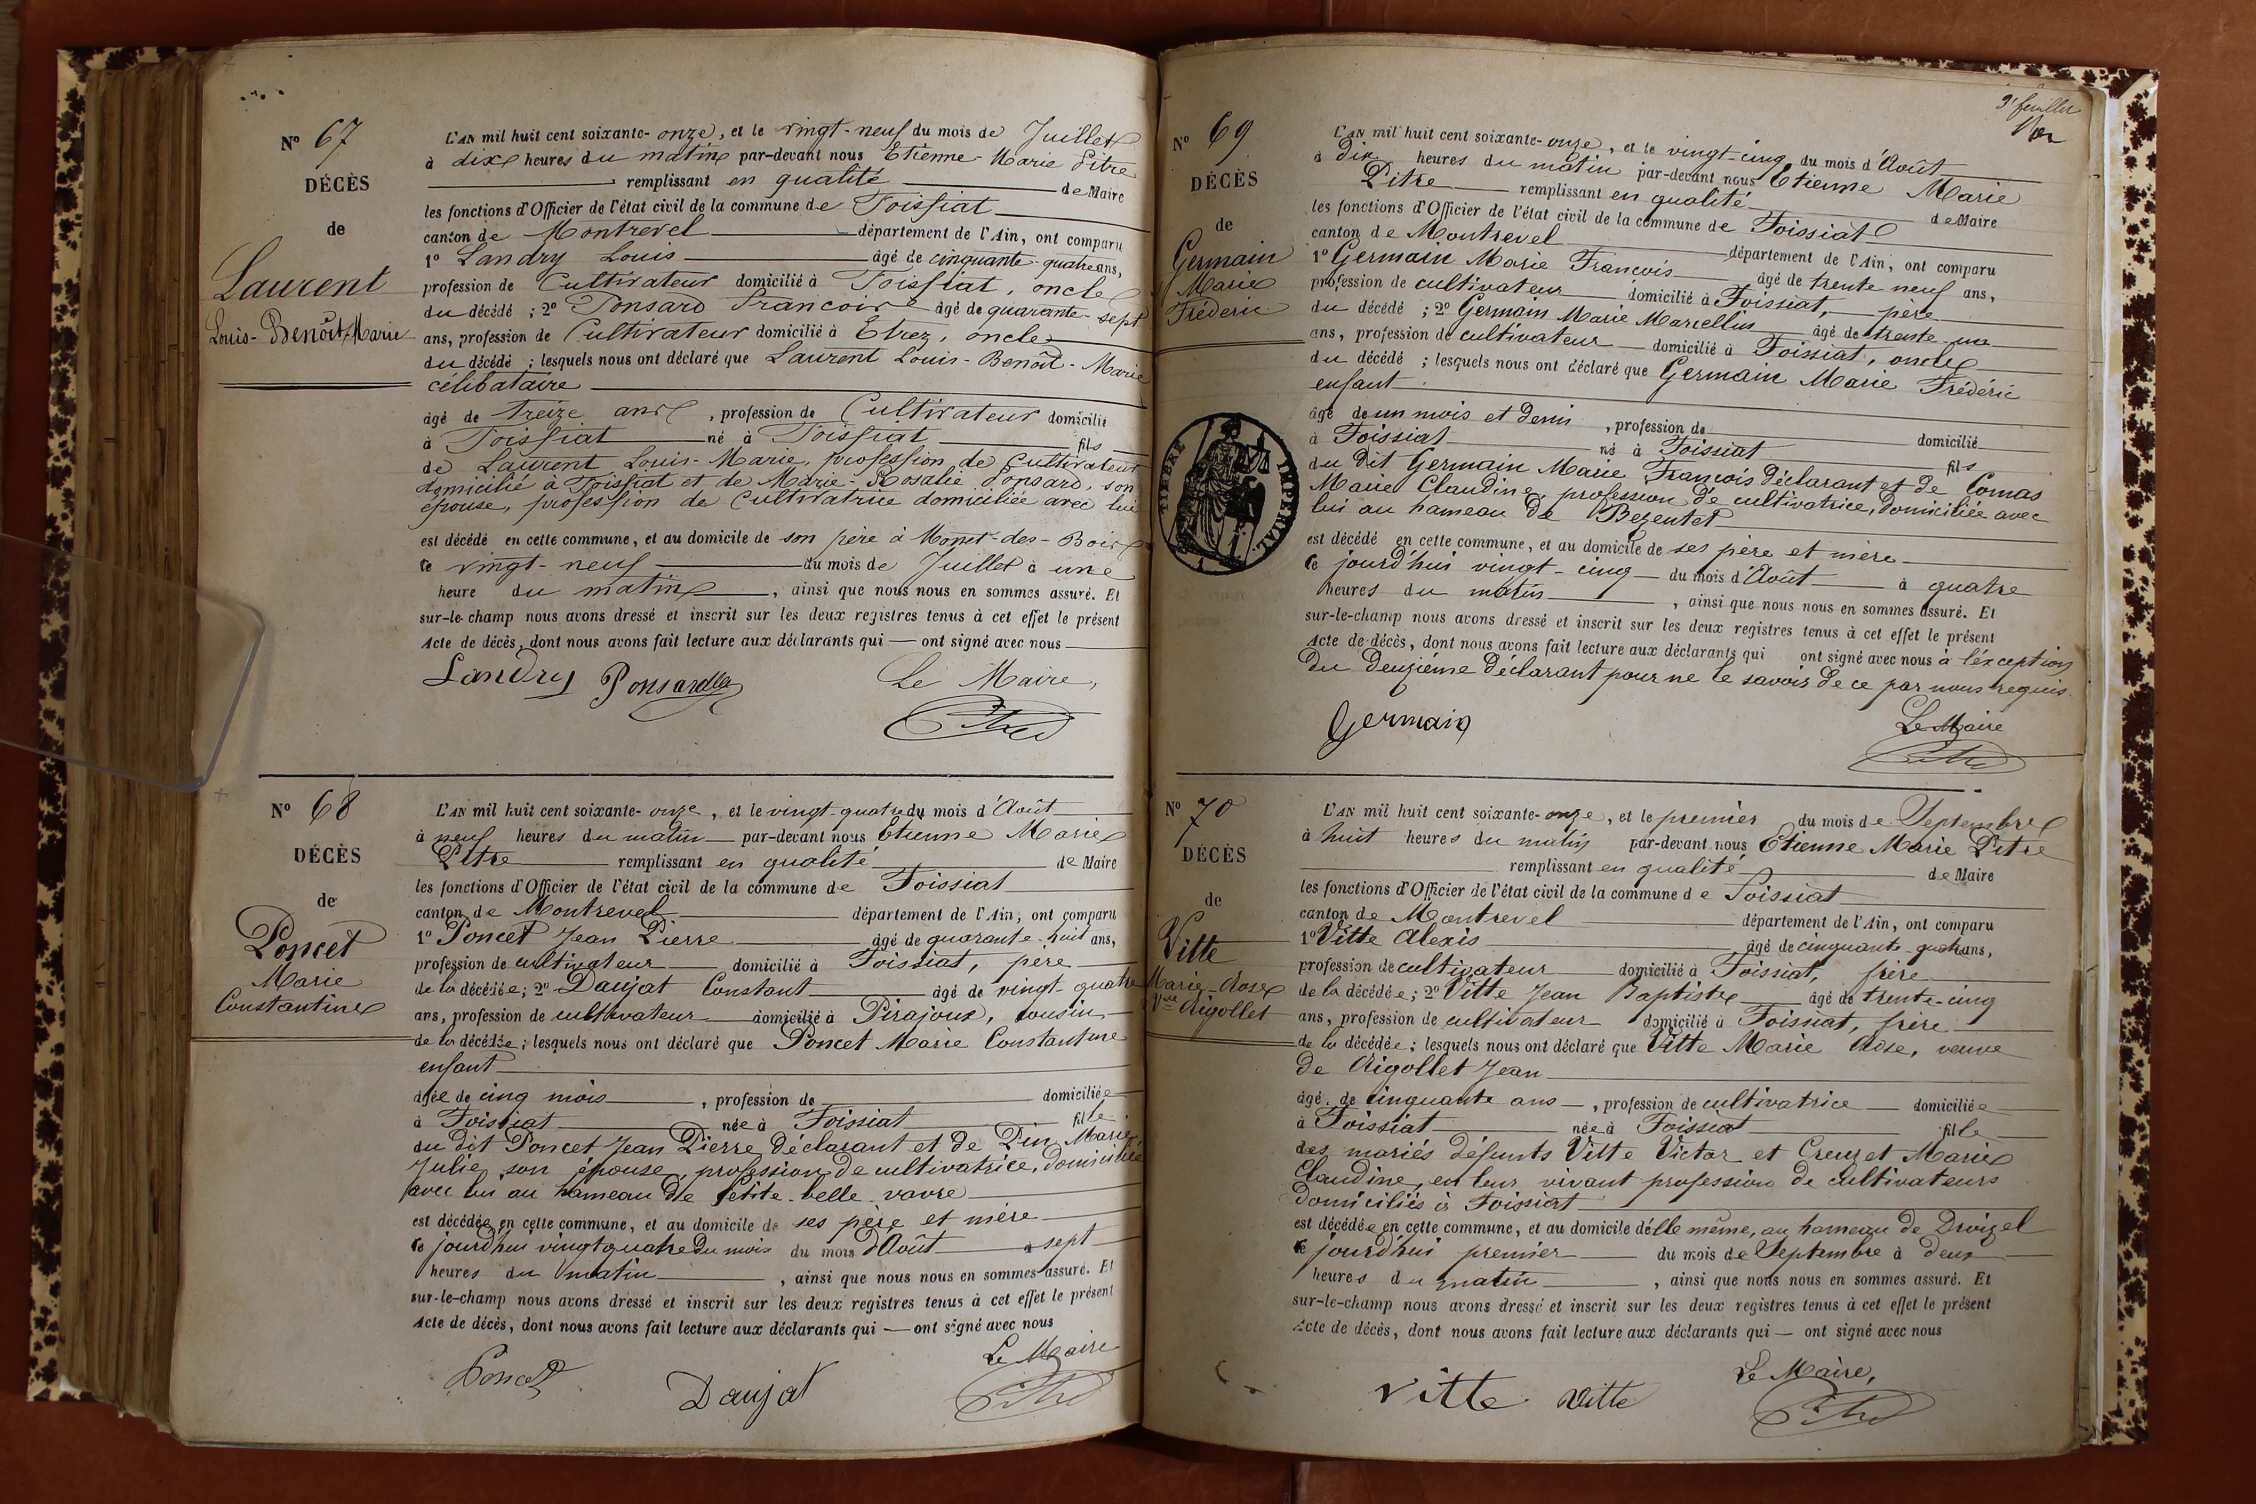 Nº 67
DÉCÈS
de
Laurent
Louis-Benoît-Marie
L'AN mil huit cent soixante-onze, et le vingt-neuf du mois de Juillet
à dix heures du matin par-devant nous Etienne-Marie Pitre
remplissant en qualité de Maire
les fonctions d'Officier de l'état civil de la commune de Foissiat
canton de Montrevel département de l'Ain, ont comparu
1º Landry Louis âgé de cinquante-quatre ans,
profession de Cultivateur domicilié à Foissiat, oncle
du décédé ; 2º Ponsard François âgé de quarante-sept
ans, profession de Cultivateur domicilié à Etrez, oncle
du décédé ; lesquels nous ont déclaré que Laurent Louis-Benoît-Marie
célibataire
âgé de treize ans, profession de Cultivateur domicilié
à Foissiat né à Foissiat fils
de Laurent Louis-Marie, profession de Cultivateur
domicilié à Foissiat et de Marie-Rosalie Ponsard, son
épouse, profession de Cultivatrice domiciliée avec lui
est décédé en cette commune, et au domicile de son père à Monet-des-Bois
ce vingt-neuf du mois de Juillet à une
heure du matin, ainsi que nous nous en sommes assuré. Et
sur-le-champ nous avons dressé et inscrit sur les deux registres tenus à cet effet le présent
Acte de décès, dont nous avons fait lecture aux déclarants qui — ont signé avec nous
Landry Ponsard Le Maire,
Pitre
Nº 68
DÉCÈS
de
Poncet
Marie
Constantine
L'AN mil huit cent soixante-onze, et le vingt-quatre du mois d'Août
à neuf heures du matin par-devant nous Etienne Marie
Pitre remplissant en qualité de Maire
les fonctions d'Officier de l'état civil de la commune de Foissiat
canton de Montrevel département de l'Ain, ont comparu
1º Poncet Jean Pierre âgé de quarante-huit ans,
profession de cultivateur domicilié à Foissiat, père
de la décédée; 2º Daujat Constant âgé de vingt-quatre
ans, profession de cultivateur domicilié à Pirajoux, cousin
de la décédée; lesquels nous ont déclaré que Poncet Marie Constantine
enfant
âgée de cinq mois, profession de domiciliée
à Foissiat née à Foissiat fille
du dit Poncet Jean Pierre déclarant et de Pin Marie
Julie son épouse, profession de cultivatrice, domiciliée
avec lui au hameau de Petite-belle-vavre
est décédée en cette commune, et au domicile de ses père et mère
ce jourd'hui vingt quatre du mois du mois d'Août à sept
heures du matin, ainsi que nous nous en sommes assuré. Et
sur-le-champ nous avons dressé et inscrit sur les deux registres tenus à cet effet le présent
Acte de décès, dont nous avons fait lecture aux déclarants qui — ont signé avec nous
Le Maire
Poncet Daujat Pitre
9e feuillet
Nº 69
DÉCÈS
de
Germain
Marie
Fréderic
TIMBRE IMPERIAL
L'AN mil huit cent soixante-onze, et le vingt-cinq du mois d'Août
à dix heures du matin par-devant nous Etienne Marie
Pitre remplissant en qualité de Maire
les fonctions d'Officier de l'état civil de la commune de Foissiat
canton de Montrevel département de l'Ain, ont comparu
1º Germain Marie François âgé de trente neuf ans,
profession de cultivateur domicilié à Foissiat, père
du décédé ; 2º Germain Marie Marcellin âgé de trente-un
ans, profession de cultivateur domicilié à Foissiat, oncle
du décédé ; lesquels nous ont déclaré que Germain Marie Frédéric
enfant
âgé de un mois et demi, profession de domicilié
à Foissiat né à Foissiat fils
du dit Germain Marie François déclarant et de Comas
Marie Claudine, profession de cultivatrice, domiciliée avec
lui au hameau de Bezentet
est décédé en cette commune, et au domicile de ses père et mère
ce jourd'hui vingt-cinq du mois d'Août à quatre
heures du matin, ainsi que nous nous en sommes assuré. Et
sur-le-champ nous avons dressé et inscrit sur les deux registres tenus à cet effet le présent
Acte de décès, dont nous avons fait lecture aux déclarants qui ont signé avec nous à l'exception
du deuxième déclarant pour ne le savoir de ce par nous requis.
Germain Le Maire
Pitre
Nº 70
DÉCÈS
de
Vitte
Marie-Rose
Vve Rigollet
L'AN mil huit cent soixante-onze, et le premier du mois de Septembre
à huit heures du matin par-devant nous Etienne Marie Pitre
remplissant en qualité de Maire
les fonctions d'Officier de l'état civil de la commune de Foissiat
canton de Montrevel département de l'Ain, ont comparu
1º Vitte Alexis âgé de cinquante-quatre ans,
profession de cultivateur domicilié à Foissiat, frère
de la décédée; 2º Vitte Jean Baptiste âgé de trente-cinq
ans, profession de cultivateur domicilié à Foissiat, frère
de la décédée; lesquels nous ont déclaré que Vitte Marie Rose, veuve
de Rigollet Jean
âgé de cinquante ans, profession de cultivatrice domiciliée
à Foissiat née à Foissiat fille
des mariés défunts Vitte Victor et Creuzet Marie
Claudine, en leur vivant profession de cultivateurs
domiciliés à Foissiat
est décédée en cette commune, et au domicile d'elle même, au hameau de Droizel
ce jourd'hui premier du mois de Septembre à deux
heures du matin, ainsi que nous nous en sommes assuré. Et
sur-le-champ nous avons dressé et inscrit sur les deux registres tenus à cet effet le présent
Acte de décès, dont nous avons fait lecture aux déclarants qui — ont signé avec nous
Le Maire,
Vitte Vitte Pitre